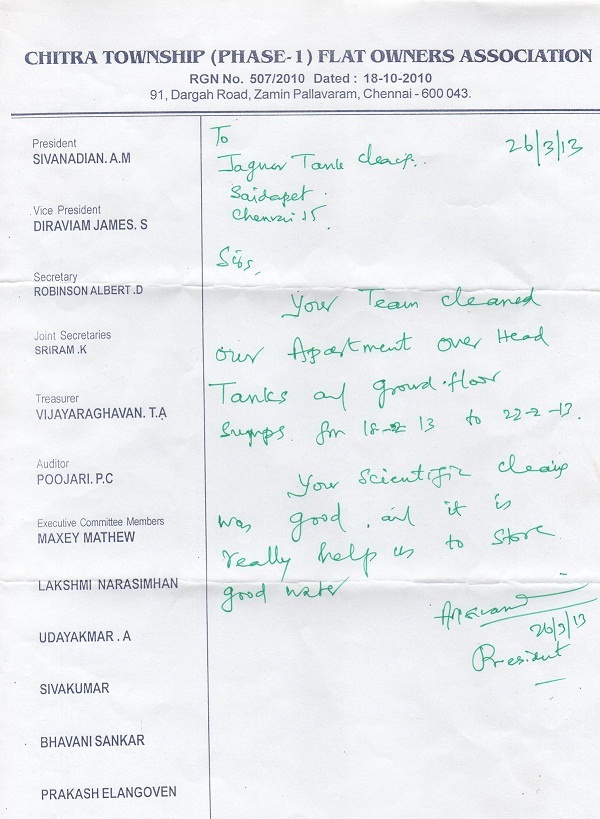 CHITRA TOWNSHIP (PHASE-1) FLAT OWNERS ASSOCIATION
RGN No. 507/2010 Dated : 18-10-2010
91, Dargah Road, Zamin Pallavaram, Chennai - 600 043.
President
SIVANADIAN. A.M
Vice President
DIRAVIAM JAMES. S
Secretary
ROBINSON ALBERT .D
Joint Secretaries
SRIRAM .K
Treasurer
VIJAYARAGHAVAN. T.A
Auditor
POOJARI. P.C
Executive Committee Members
MAXEY MATHEW
LAKSHMI NARASIMHAN
UDAYAKMAR . A
SIVAKUMAR
BHAVANI SANKAR
PRAKASH ELANGOVEN
26/3/13
To
Jaguar Tank
Saidapet.
Chennai 15.
Sirs,
Your Team cleaned
our Apartment over Head
Tanks and ground-floor
Sumps. for 18-2 13 to 22-2-13.
Your Scientific
was good. and it is
really help us to store
good water
26/3/13
President